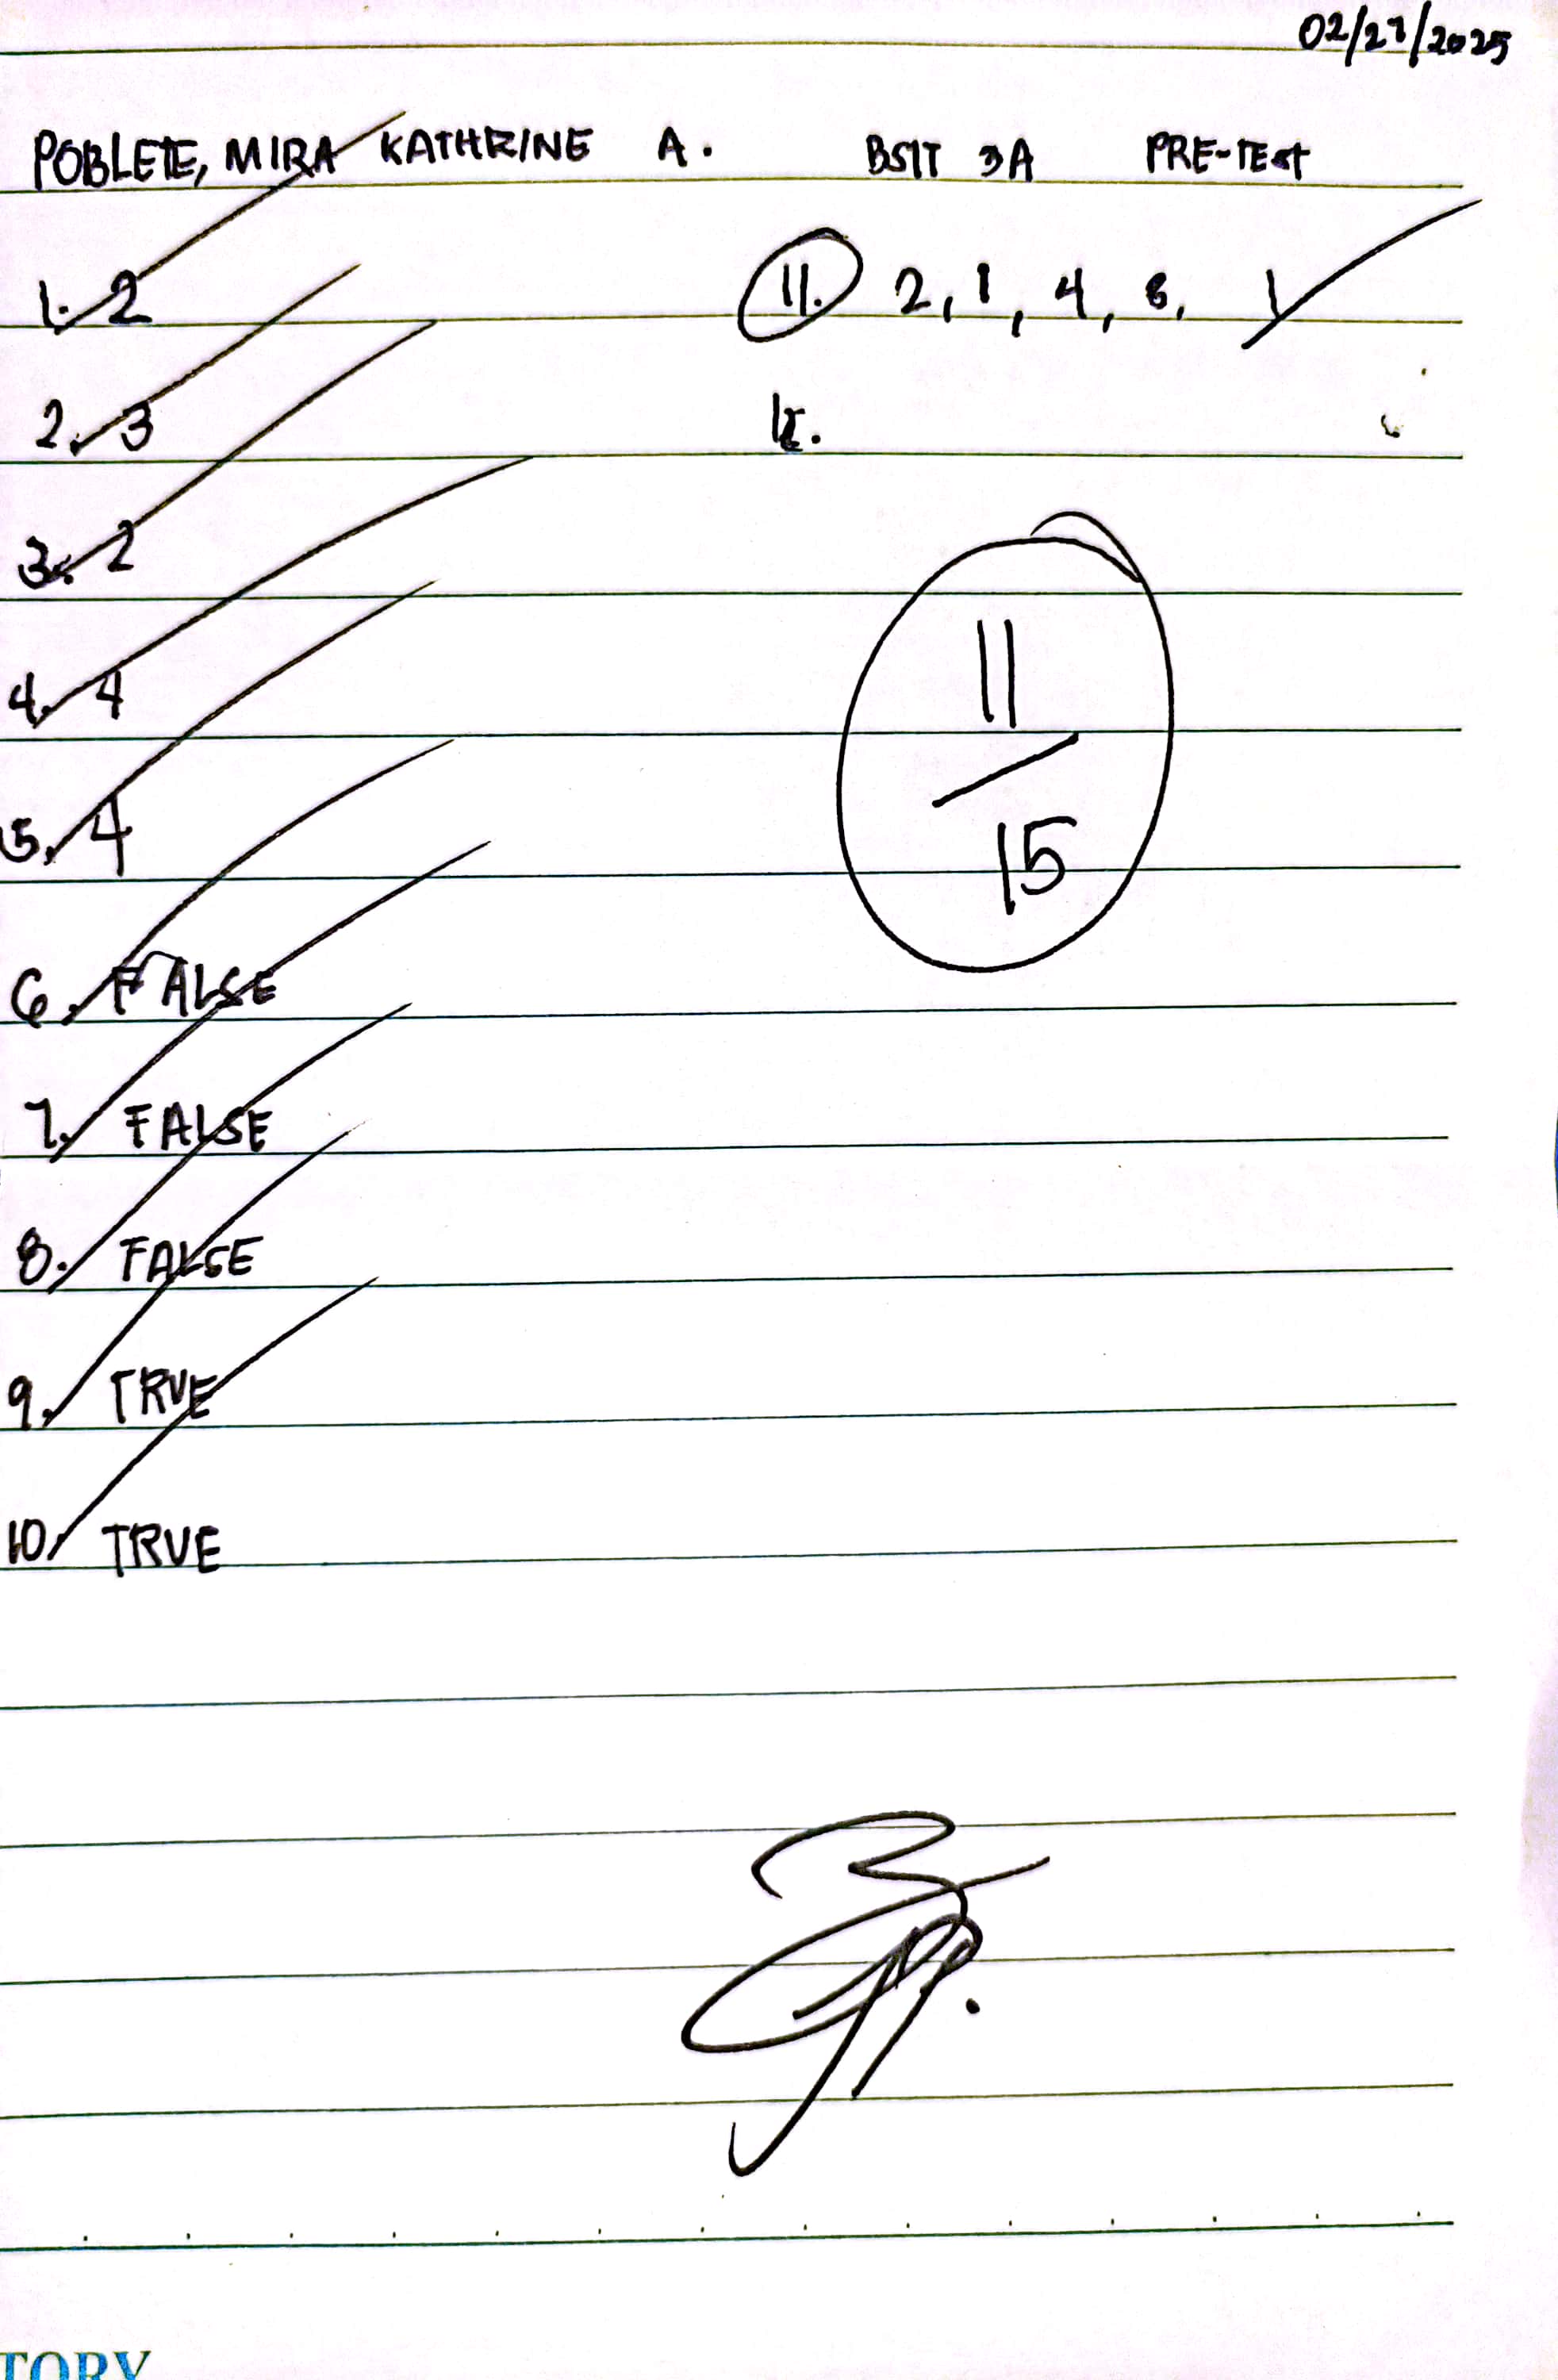 02/27/2025
POBLETE, MIRA KATHRINE A. BSIT 3A PRE-TEST
1. 2
2. 3
3. 2
4. 4
5. 4
6. FALSE
7. FALSE
8. FALSE
9. TRUE
10. TRUE
11. 2, 1, 4, 3,
11
15
TORY